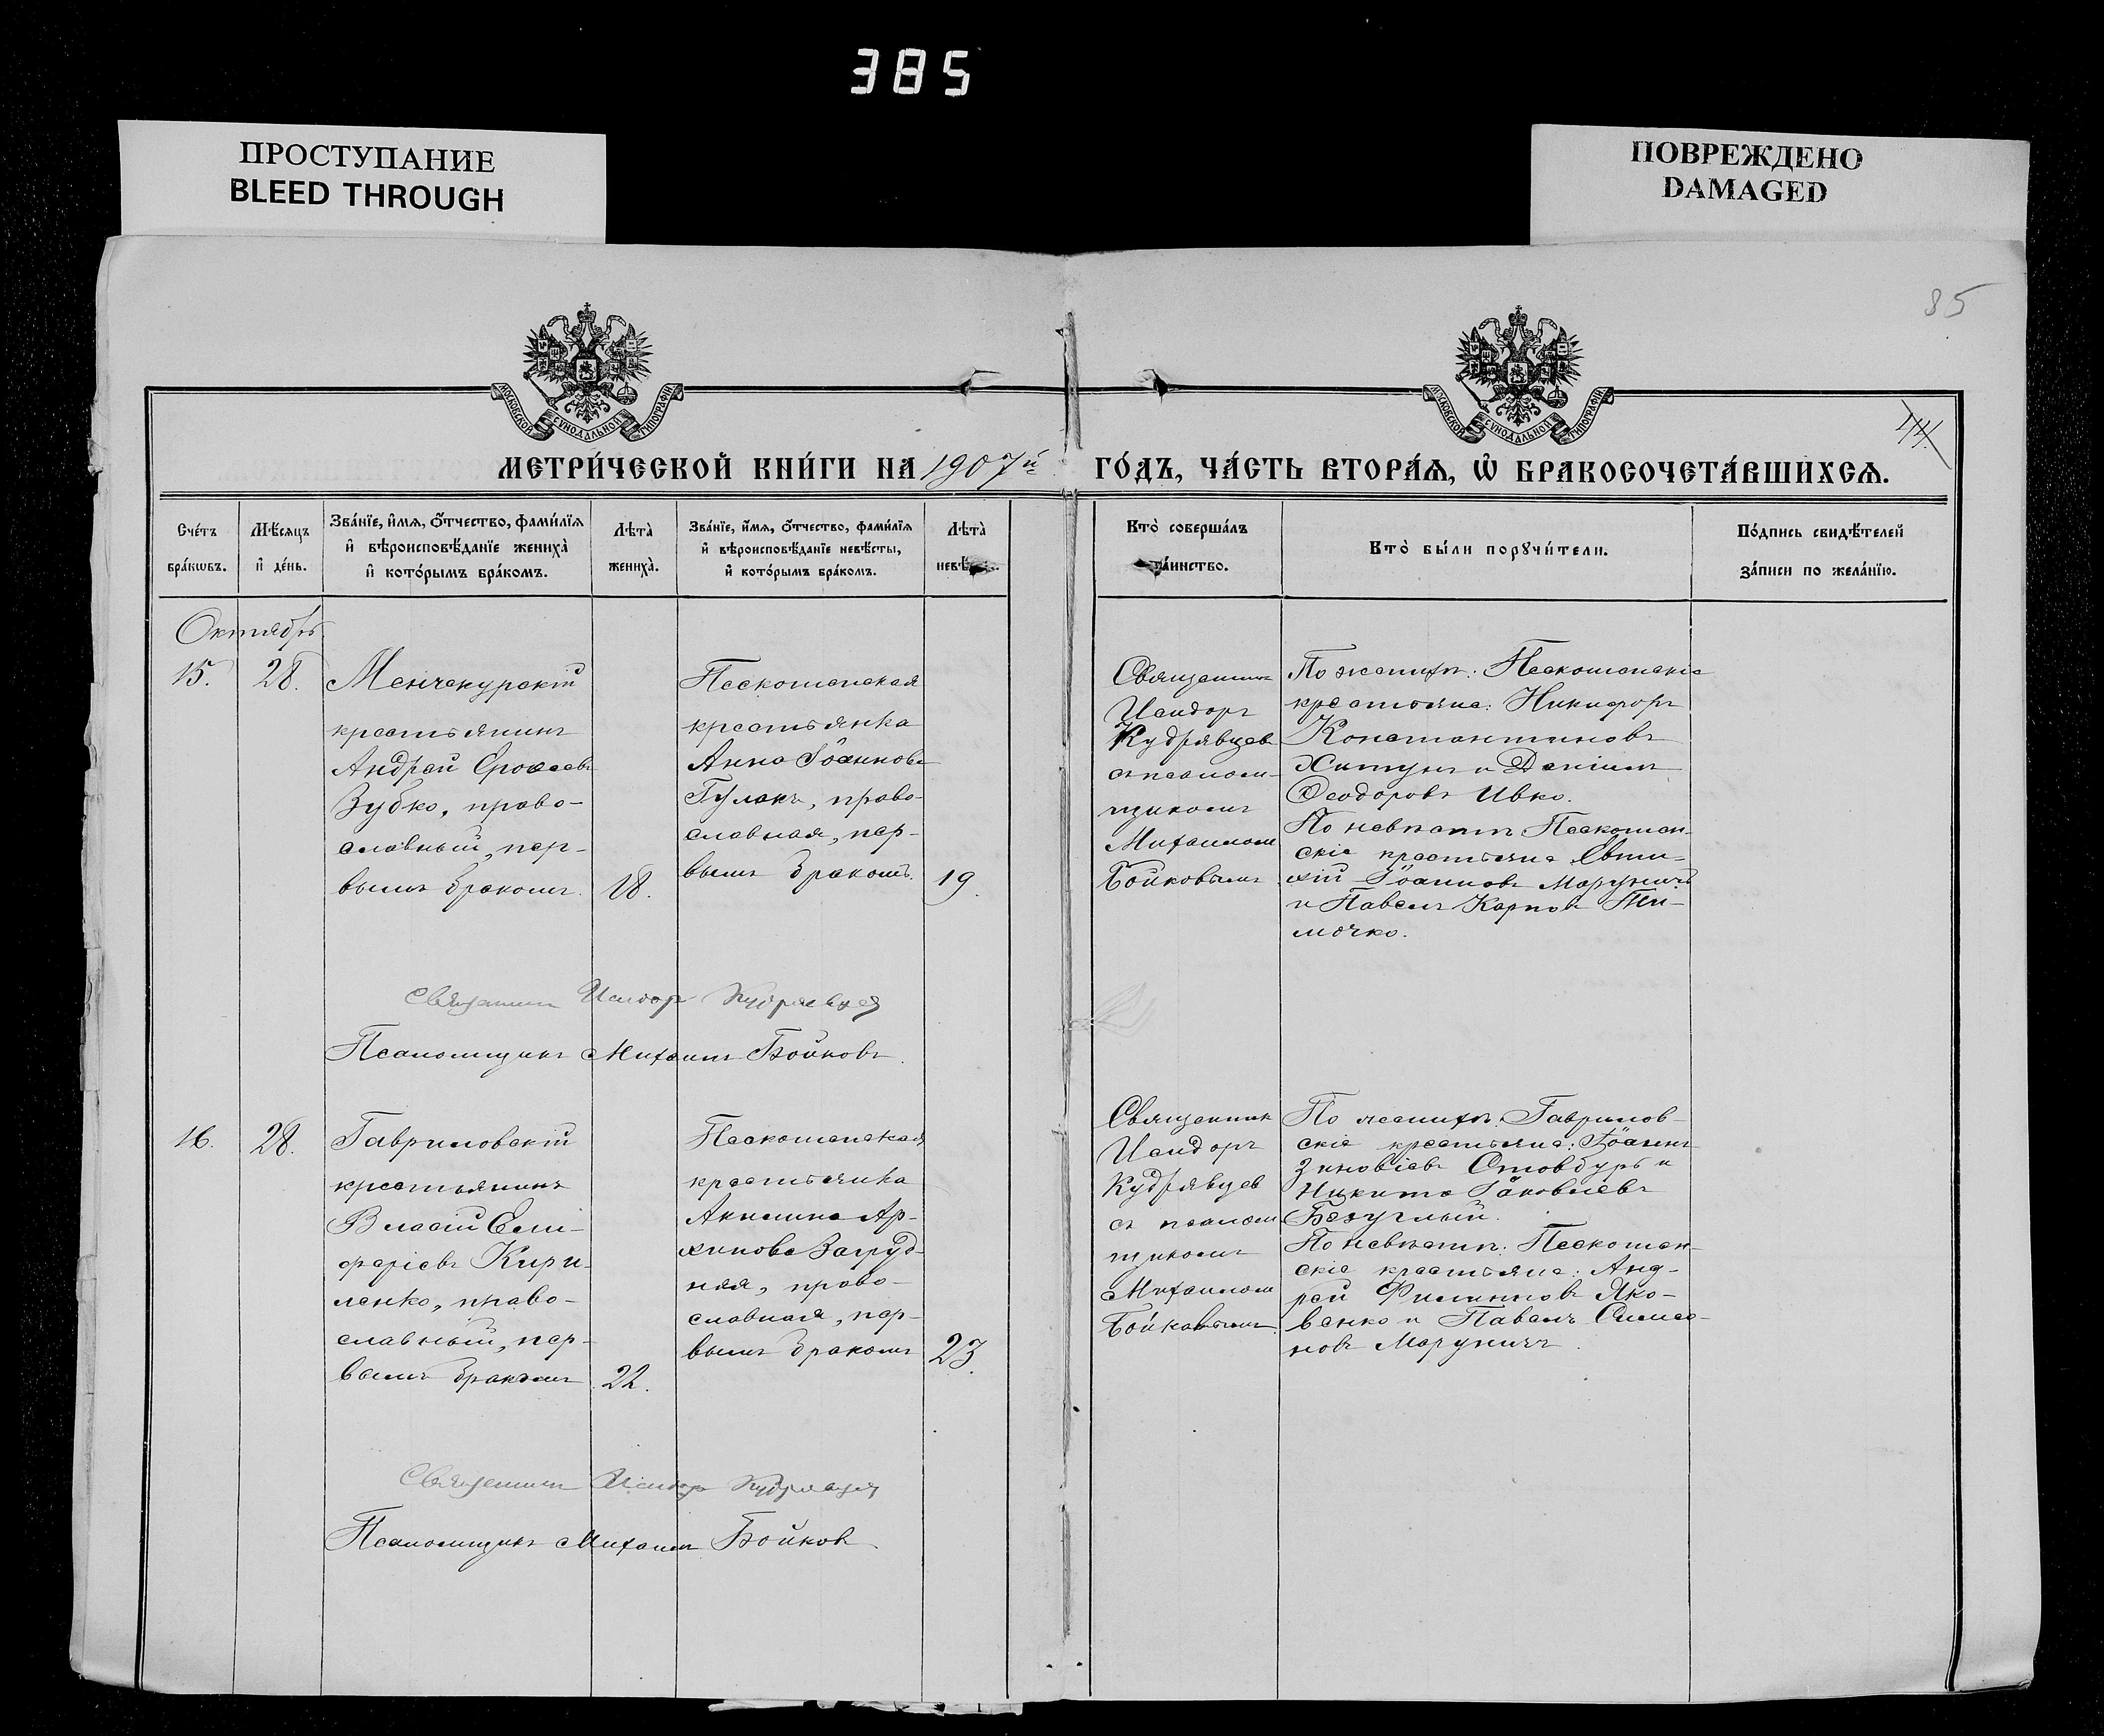 385
ПРОСТУПАНИЕ
BLEED THROUGH
ПОВРЕЖДЕНО
DAMAGED
85
МОСКОВСКОЙ СУНОДАЛЬНОЙ ТИПОГРАФІИ
МОСКОВСКОЙ СУНОДАЛЬНОЙ ТИПОГРАФІИ
МЕТРИ́ЧЕСКОЙ КНИ́ГИ НА 1907й ГО́ДЪ, ЧА́СТЬ ВТОРА́Ѧ, Ѽ БРАКОСОЧЕТА́ВШИХСѦ.
Сче́тъ бра́кѡвъ.
Мѣ́сяцъ и҆ де́нь.
Зва́нїе, и҆́мѧ, ѻ҆́тчество, фамѝлїѧ
и҆ вѣроисповѣ́данїе жениха̀
и҆ кото́рымъ бра́комъ.
Лѣта̀ жениха̀.
Зва́нїе, и҆́мѧ, ѻ҆́тчество, фамѝлїѧ
и҆ вѣроисповѣ́данїе невѣ́сты,
и҆ кото́рымъ бра́комъ.
Лѣта̀
Кто̀ соверша́лъ
та́инство.
Кто̀ бы́ли порꙋчи́тели.
По́дпись свидѣ́телей
за́писи по жела́нїю.
Октябрь
15.
28.
Менчекурскій
крестьянинъ
Андрей
Зубко, право-
славный, пер-
вымъ бракомъ.
18.
Пескошенская
крестьянка
Анна Іоаннова
Гулакъ, право-
славная, пер-
вымъ бракомъ.
19.
Священникъ
Исидоръ
Кудрявцевъ
съ псаломщ-
щикомъ
Михаиломъ
Бойковымъ.
По женихѣ: Пескошенскіе
крестьяне: Никифоръ
Константиновъ
Хитунъ и Даніилъ
Ѳеодоровъ Ивко.
По невѣстѣ: Пескошен-
скіе крестьяне Евти-
хій Іоанновъ Маруничъ
и Павелъ Карповъ Ти-
мочко.
Священникъ Исидоръ Кудрявцевъ
Псаломщикъ Михаилъ Бойковъ.
16.
28.
Гавриловскій
крестьянинъ
Власій Ели-
феріевъ Кири-
ленко, право-
славный, пер-
вымъ бракомъ
22.
Пескошенская
крестьянка
Акилина Ар-
хипова Загруд-
няя, право-
славная, пер-
вымъ бракомъ
23.
Священникъ
Исидоръ
Кудрявцев
съ псалом
щикомъ
Михаиломъ
Бойковымъ.
По женихѣ: Гаврилов-
скіе крестьяне: Іоаннъ
Зиновіевъ Стовбуръ и
Никита Іаковлевъ
Безуглый.
По невѣстѣ: Пескошен-
скіе крестьяне: Анд-
рей Филипповъ Яко-
венко и Павелъ Симео-
новъ Маруничъ.
Священникъ Исидоръ Кудрявцевъ
Псаломщикъ Михаилъ Бойков